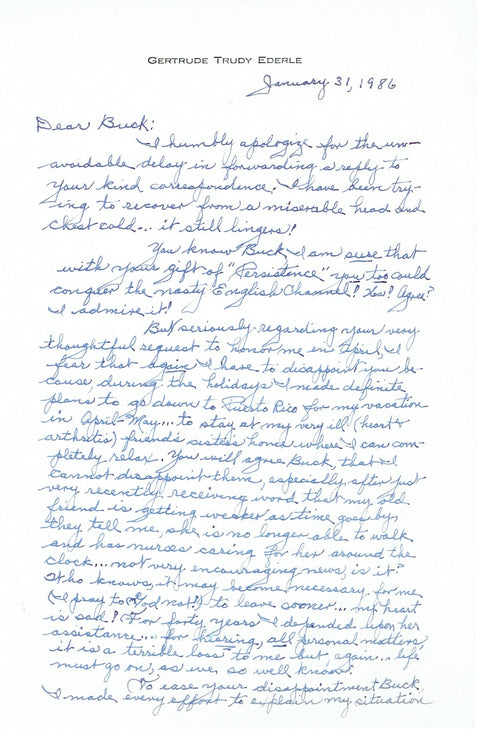 GERTRUDE TRUDY EDERLE
January 31, 1986
Dear Buck:
I humbly apologize for the un-
avoidable delay in forwarding a reply to
your kind correspondence. I have been try-
ing to recover from a miserable head and
chest cold... it still lingers!
You know Buck, I am sure that
with your gift of "Persistence" you too could
conquer the nasty English Channel! Yes! Agree?
I admire it!
But seriously regarding your very
thoughtful request to honor me in April, I
fear that again I have to disappoint you be-
cause, during the holidays I made definite
plans to go down to Puerto Rico for my vacation
in April-May... to stay at my very ill (heart &
arthritis) friend's sister's home where I can com-
pletely relax. You will agree Buck, that I
cannot disappoint them, especially after just
very recently receiving word that my old
friend is getting weaker as time goes by,
they tell me, she is no longer able to walk
and has nurses caring for her around the
clock... not very encouraging news, is it?
Who knows, it may become necessary for me
(I pray to God not!) to leave sooner... my heart
is sad! (For forty years I depended upon her
assistance... for hearing, all personal matters,
it is a terrible loss to me but, again... life
must go on, as we so well know!
To ease your disappointment Buck,
I made every effort to explain my situation